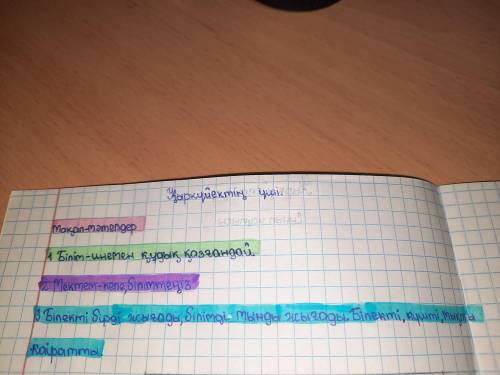 Қыркүйектің үші.
Мақал-мәтелдер
1. Білім-инемен құдық қазғандай.
2. Мектеп-кеме, білім-теңіз
3. Білекті бірді жығады, білімді мыңды жығады. Білекті, күшті, мықты
қайратты.